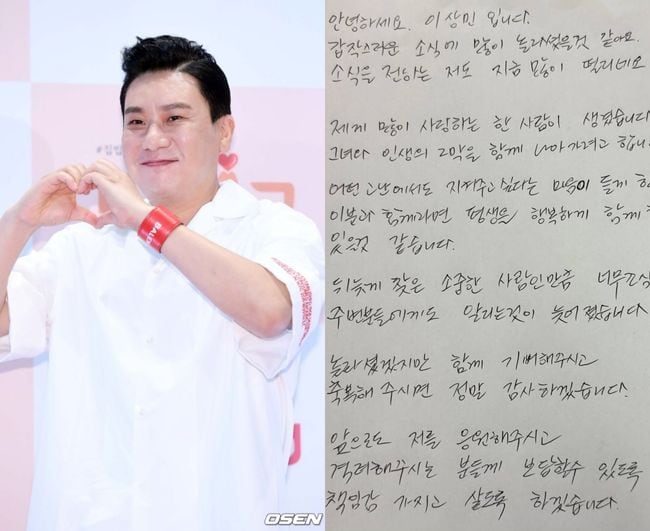 안녕하세요. 이상민 입니다.
갑작스러운 소식에 많이 놀라셨을것 같아요.
소식을 전하는 저도 지금 많이 떨리네요
제게 많이 사랑하는 한 사람이 생겼습니다
그녀와 인생의 2막을 함께 나아가려고 합니
어떤 고난에서도 지켜주고 싶다는 마음이 들게 하
이분과 함께라면 평생을 행복하게 함께 할
있을것 같습니다.
뒤늦게 찾은 소중한 사람인만큼
주변분들에게도 알리는것이 늦어졌습니다
놀라셨겠지만 함께 기뻐해주시고
축복해 주시면 정말 감사하겠습니다.
앞으로도 저를 응원해주시고
격려해주시는 분들께 보답할수 있도록
책임감 가지고 살도록 하겠습니다.
OSEN